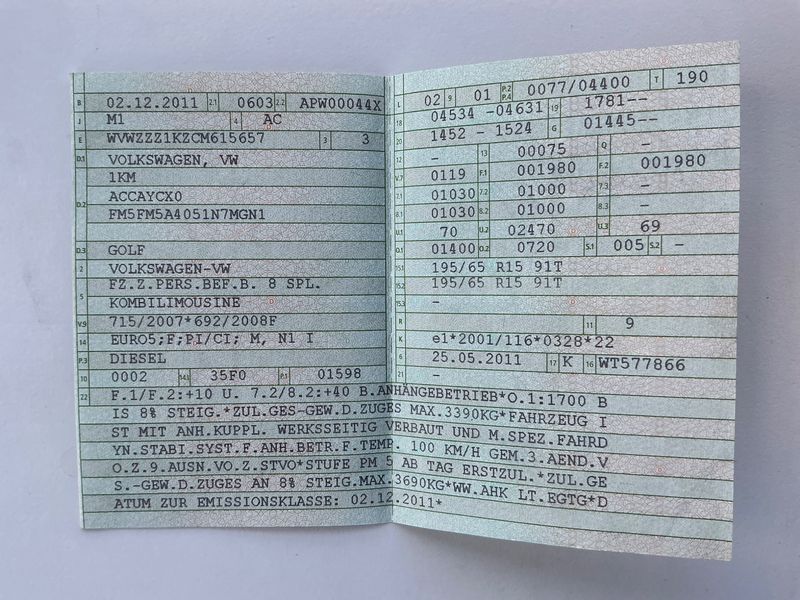 B 02.12.2011 2.1 0603 2.2 APW00044X
J M1 4 AC
E WVWZZZ1KZCM615657 3 3
D.1 VOLKSWAGEN, VW
1KM
D.2 ACCAYCX0
FM5FM5A4051N7MGN1
D.3 GOLF
2 VOLKSWAGEN-VW
5 FZ.Z.PERS.BEF.B. 8 SPL.
KOMBILIMOUSINE
V.9 715/2007*692/2008F
14 EURO5;F;PI/CI; M, N1 I
P.3 DIESEL
10 0002 14.1 35F0 P.1 01598
L 02 9 01 P.2 P.4 0077/04400 T 190
18 04534 -04631 19 1781--
20 1452 - 1524 G 01445--
12 - 13 00075 Q -
V.7 0119 F.1 001980 F.2 001980
7.1 01030 7.2 01000 7.3 -
8.1 01030 8.2 01000 8.3 -
U.1 70 U.2 02470 U.3 69
O.1 01400 O.2 0720 S.1 005 S.2 -
15.1 195/65 R15 91T
15.2 195/65 R15 91T
15.3 -
R 11 9
K e1*2001/116*0328*22
6 25.05.2011 17 K 16 WT577866
21 -
22 F.1/F.2:+10 U. 7.2/8.2:+40 B.ANHÄNGEBETRIEB*O.1:1700 B
IS 8% STEIG.*ZUL.GES-GEW.D.ZUGES MAX.3390KG*FAHRZEUG I
ST MIT ANH.KUPPL. WERKSSEITIG VERBAUT UND M.SPEZ.FAHRD
YN.STABI.SYST.F.ANH.BETR.F.TEMP. 100 KM/H GEM.3.AEND.V
O.Z.9.AUSN.VO.Z.STVO*STUFE PM 5 AB TAG ERSTZUL.*ZUL.GE
S.-GEW.D.ZUGES AN 8% STEIG.MAX.3690KG*WW.AHK LT.EGTG*D
ATUM ZUR EMISSIONSKLASSE: 02.12.2011*